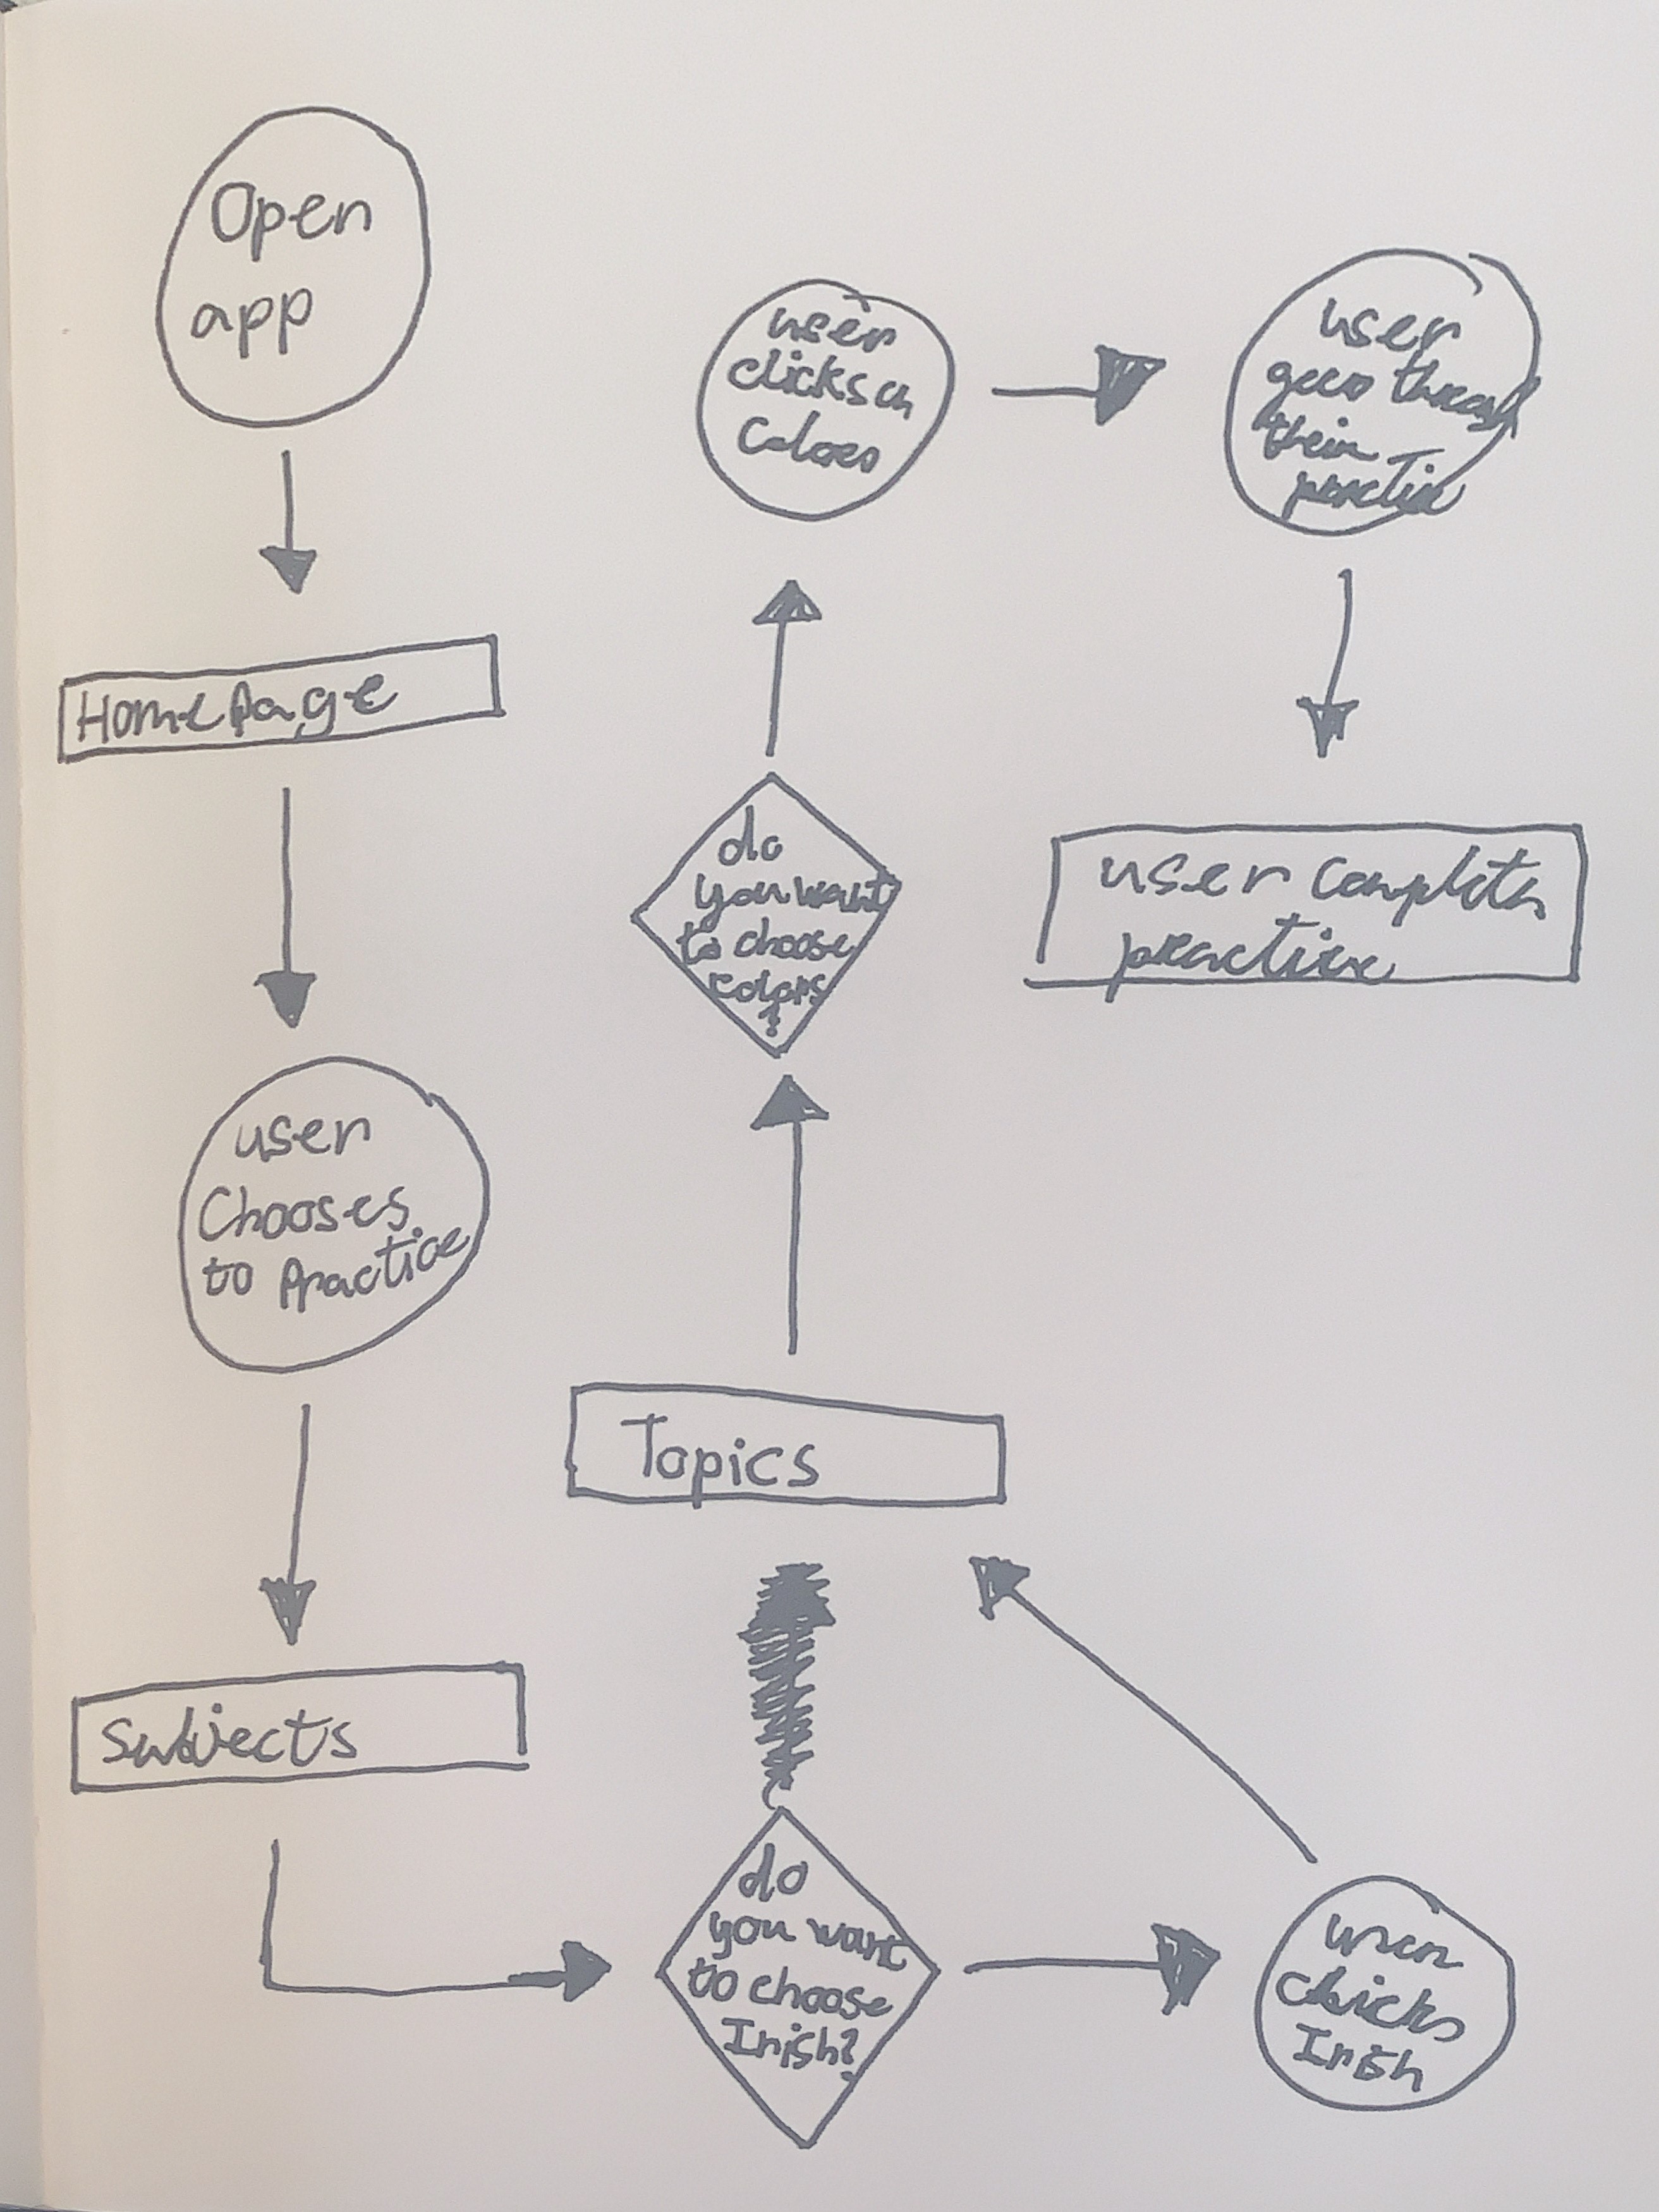 Open
app
HomePage
user
Chooses
to Practice
Subjects
do
you want
to choose
Irish?
user
clicks
Irish
Topics
do
you want
to choose
colors
?
user
clicks on
Colors
user
goes through
their
practice
user completes
practice